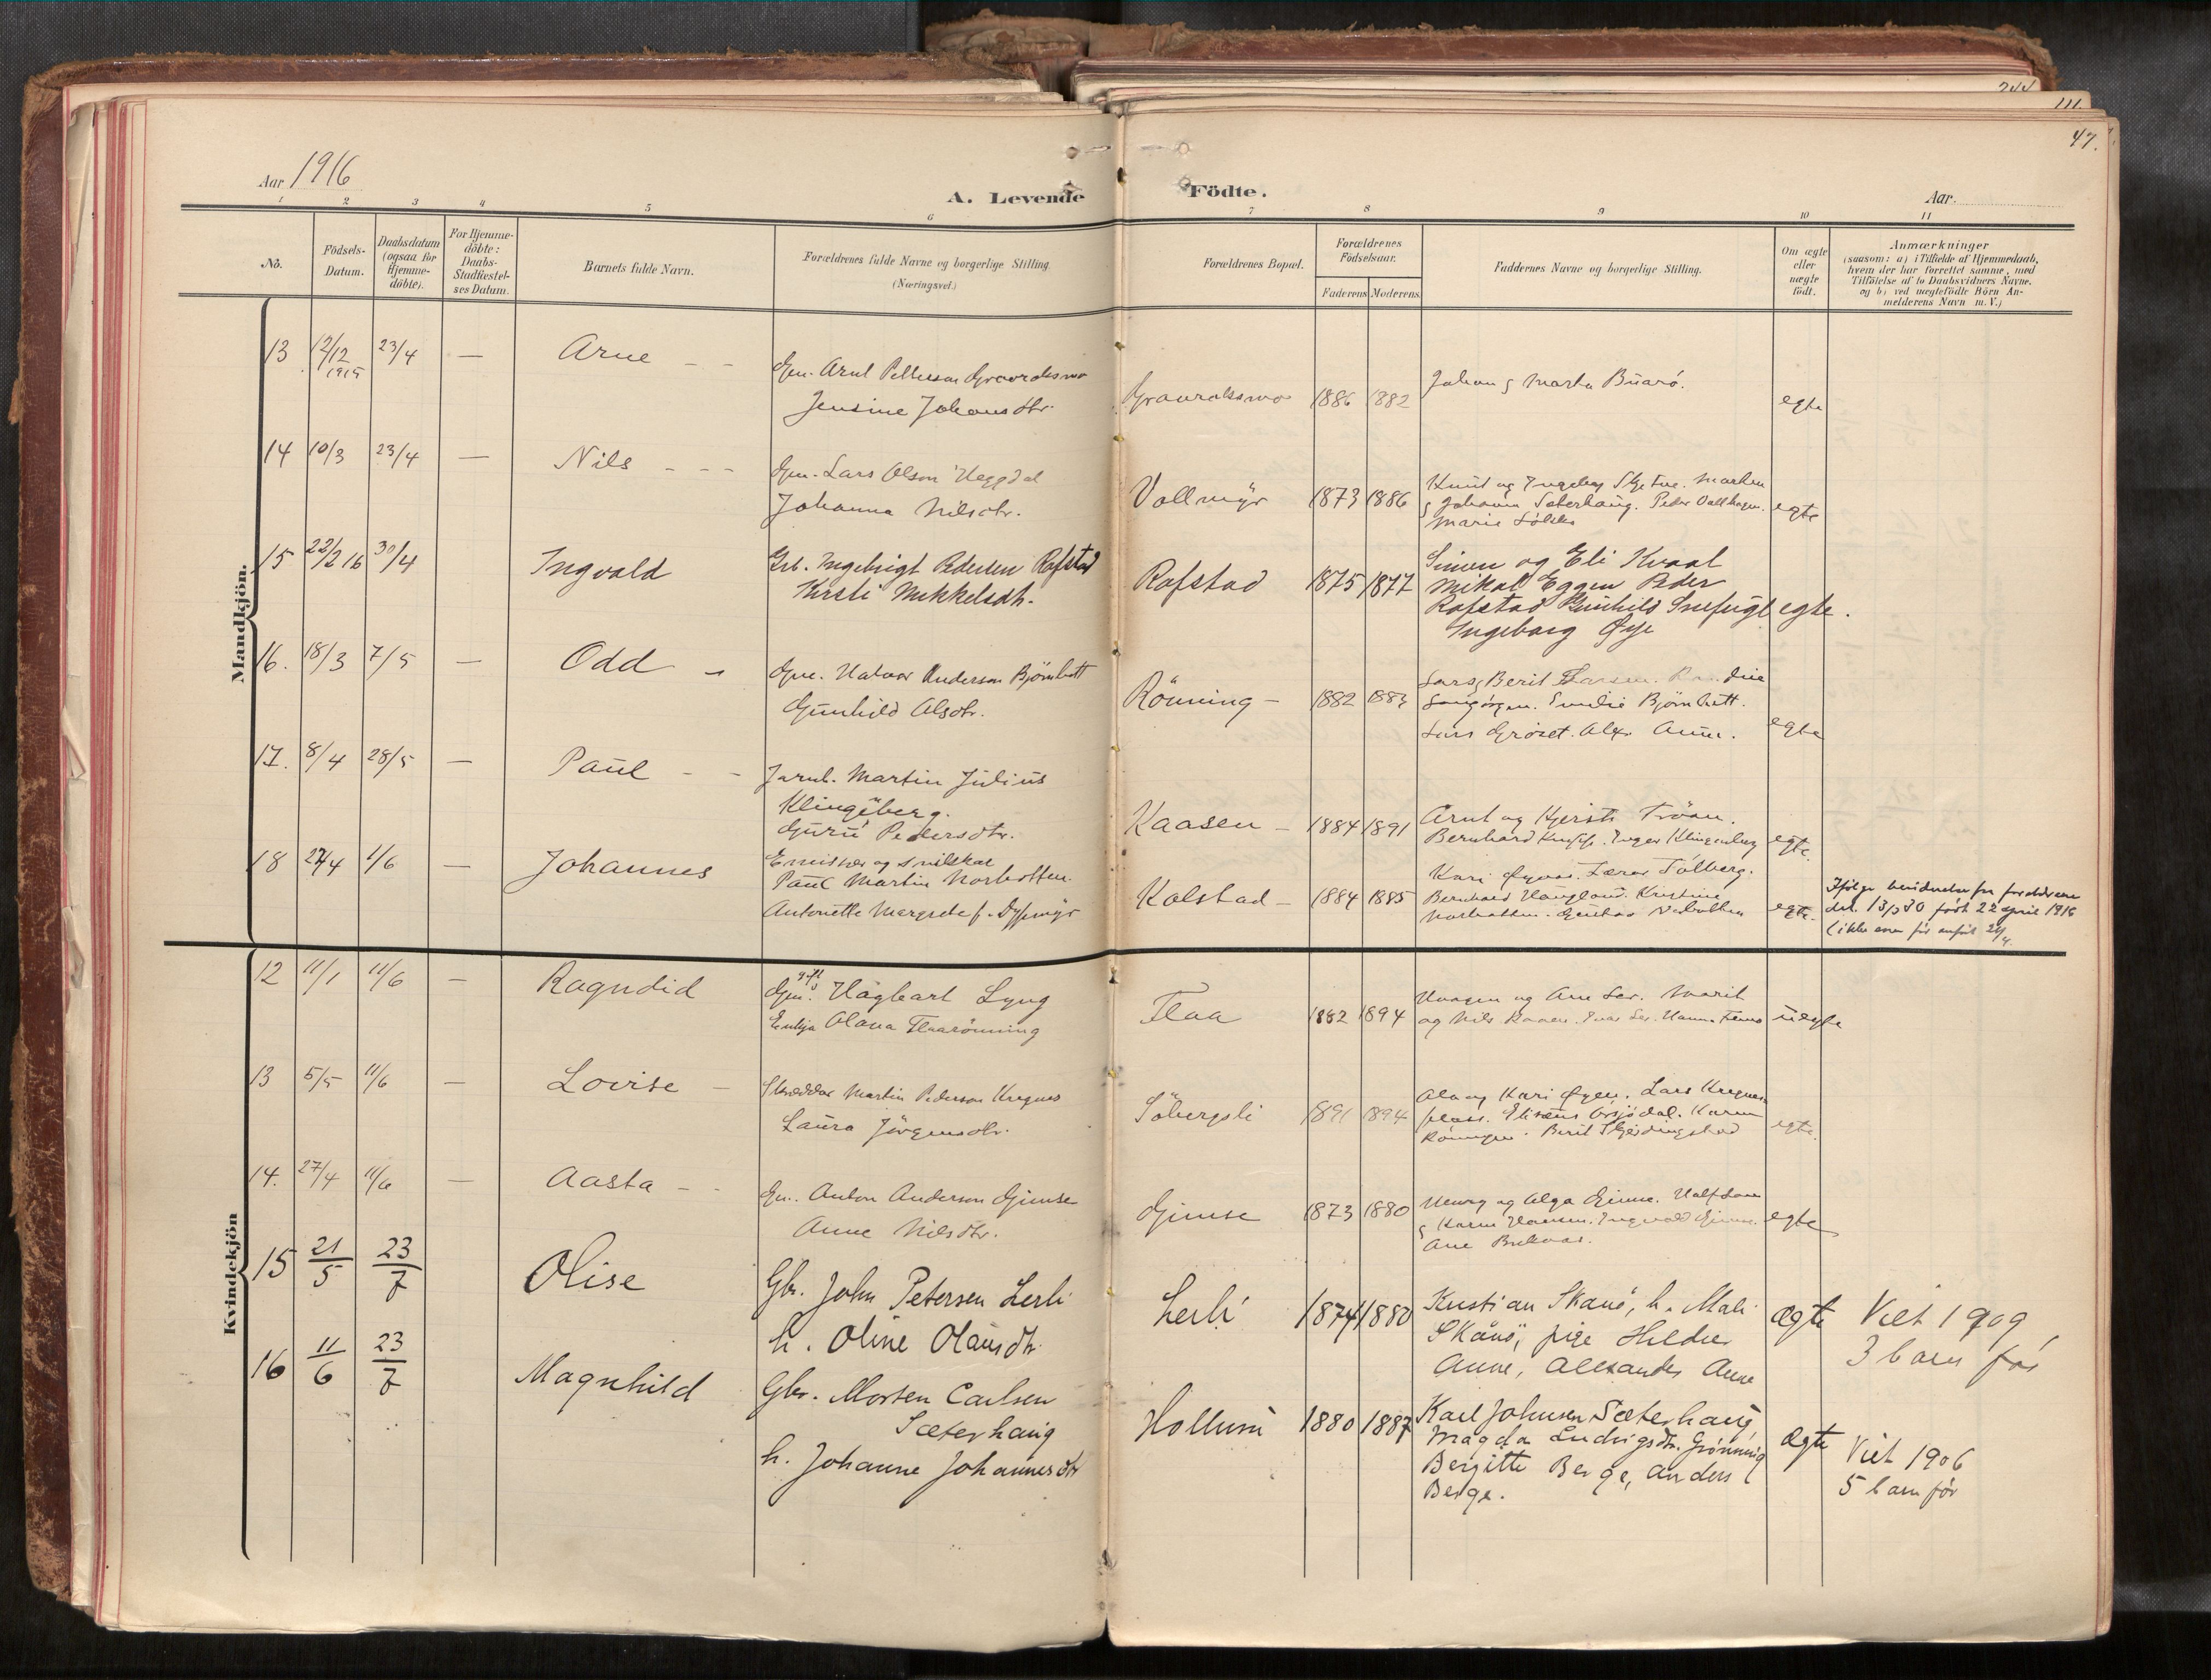 244
111.
47.
Aar 1916
A. Levende Födte.
Aar
1 2 3 4 5 6 7 8 9 10 11
No.
Födsels-
Datum.
Daabsdatum
(ogsaa for
Hjemme-
döbte).
For Hjemme-
döbte:
Daabs-
Stadfæstel-
ses Datum.
Barnets fulde Navn.
Forældrenes fulde Navne og borgerlige Stilling
(Næringsvei.)
Forældrenes Bopæl.
Forældrenes
Födselsaar.
Faderens Moderens
Faddernes Navne og borgerlige Stilling.
Om ægte
eller
uægte
födt.
Anmærkninger
(saasom: a) i Tilfælde af Hjemmedaab,
hvem der har forrettet samme, med
Tilföielse af to Daabsvidners Navne.
og b) ved uægtefödte Börn An-
melderens Navn m. V.)
Mandkjön.
13 12/12 1915 23/4 — Arne - -
Gm. Arnt Pettersen
Jensine Johansdtr.
1886 1882
Johan g Marta Buarö.
egte
14 10/3 23/4 — Nils - - -
Gm. Lars Olson Heggdal
Johanna Nilsdtr.
Vollmyr 1873 1886
Knut og Ingeborg
g Johanna Sæterhaug. Peder
Marie
egte
15 22/2 16 30/4 Ingvald
Grb. Ingebrigt Pedersen Rofstad
Kirsti Mikkelsdtr.
Rofstad 1875 1877
Simen og Eli Kvaal
Mikal Eggen Peder
Rofstad Gunhild Snefugl
Ingeborg Øye
egte.
16. 18/3 7/5 — Odd -
Gm. Halvor Anderson Björnbett
Gunhild Olsdtr.
Rönning - 1882 1883
Lars g Berit Larsen.
Emilie Björnbett.
Lars Gröset. Alex. Aune.
egte
17. 8/4 28/5 — Paul - -
Jarnb. Martin Julius
Klingeberg.
Guru Pedersdtr.
Kaasen - 1884 1891
Arnt og Kjersti Tröan.
Bernhard Inger Klingenberg
egte.
18 27/4 1/6 — Johannes
Emissær og snikkar
Paul Martin Norbotten.
Antonette Margrete f. Dypmyr
Kolstad - 1884 1885
Kari Øyaas. Lærer Solberg.
Bernhard Haugland. Kristine
Norbotten.
egte.
Ifølge fra foreldrene
dat. 13/3 30 født 22 april 1916
(ikke som før anført 27/4.
Kvindekjön
12 11/1 11/6 — Ragndid
gift
Gm. Hagbart Lyng
Enkja Olava Flaarönning
Flaa 1882 1894
Haagen og Ane Ler. Marit
og Nils Ivar Ler. Hanna
uegte
13 5/5 11/6 — Lovise -
Skræddar Martin Pederson Kregnes
Laura Jörgensdtr.
Söbergsli 1891 1894
Ola og Kari Øyen. Lars Kregnes-
plass. Elisæus Karen
Rönningen. Berit Skjerdingstad
egte.
14. 27/4 11/6 — Aasta - -
Gm. Anton Anderson Gimse
Anne Nilsdtr.
Gimse 1873 1880
Henry og Olga Gimse. Halfdan
g Karen Hansen. Ingvald Gimse.
Ane
egte
15 21/5 23/7 Olise
Gbr. John Petersen Lerli
h. Oline Olausdtr.
Lerli 1874 1880
Kristian Skanö, h. Mali
Skanö, pige Hilder
Aune, Alexander Aune
ægte
Viet 1909
3 barn før
16 11/6 23/7 Magnhild
Gbr. Morten Carlsen
Sæterhaug
h. Johanne Johannesdtr
Hollum 1880 1887
Karl Johnsen Sæterhaug
Magda Ludvigsdtr. Grönning
Bergitte Berge, Anders
Berge.
ægte
Viet 1906
5 barn før